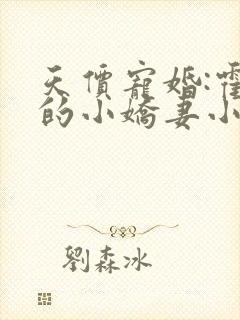 天價寵婚:霍
的小嬌妻小
劉森冰